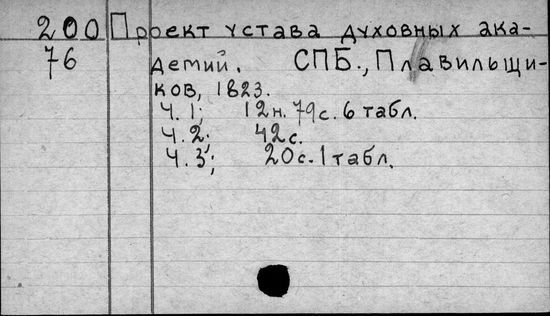 200 Проект устава духовных ака-
76 демий. СПБ., Плавильщи-
ков, 1823.
Ч. 1; 12н. 79с. 6 табл.
Ч. 2; 42с.
Ч. 3; 20с. 1 табл.